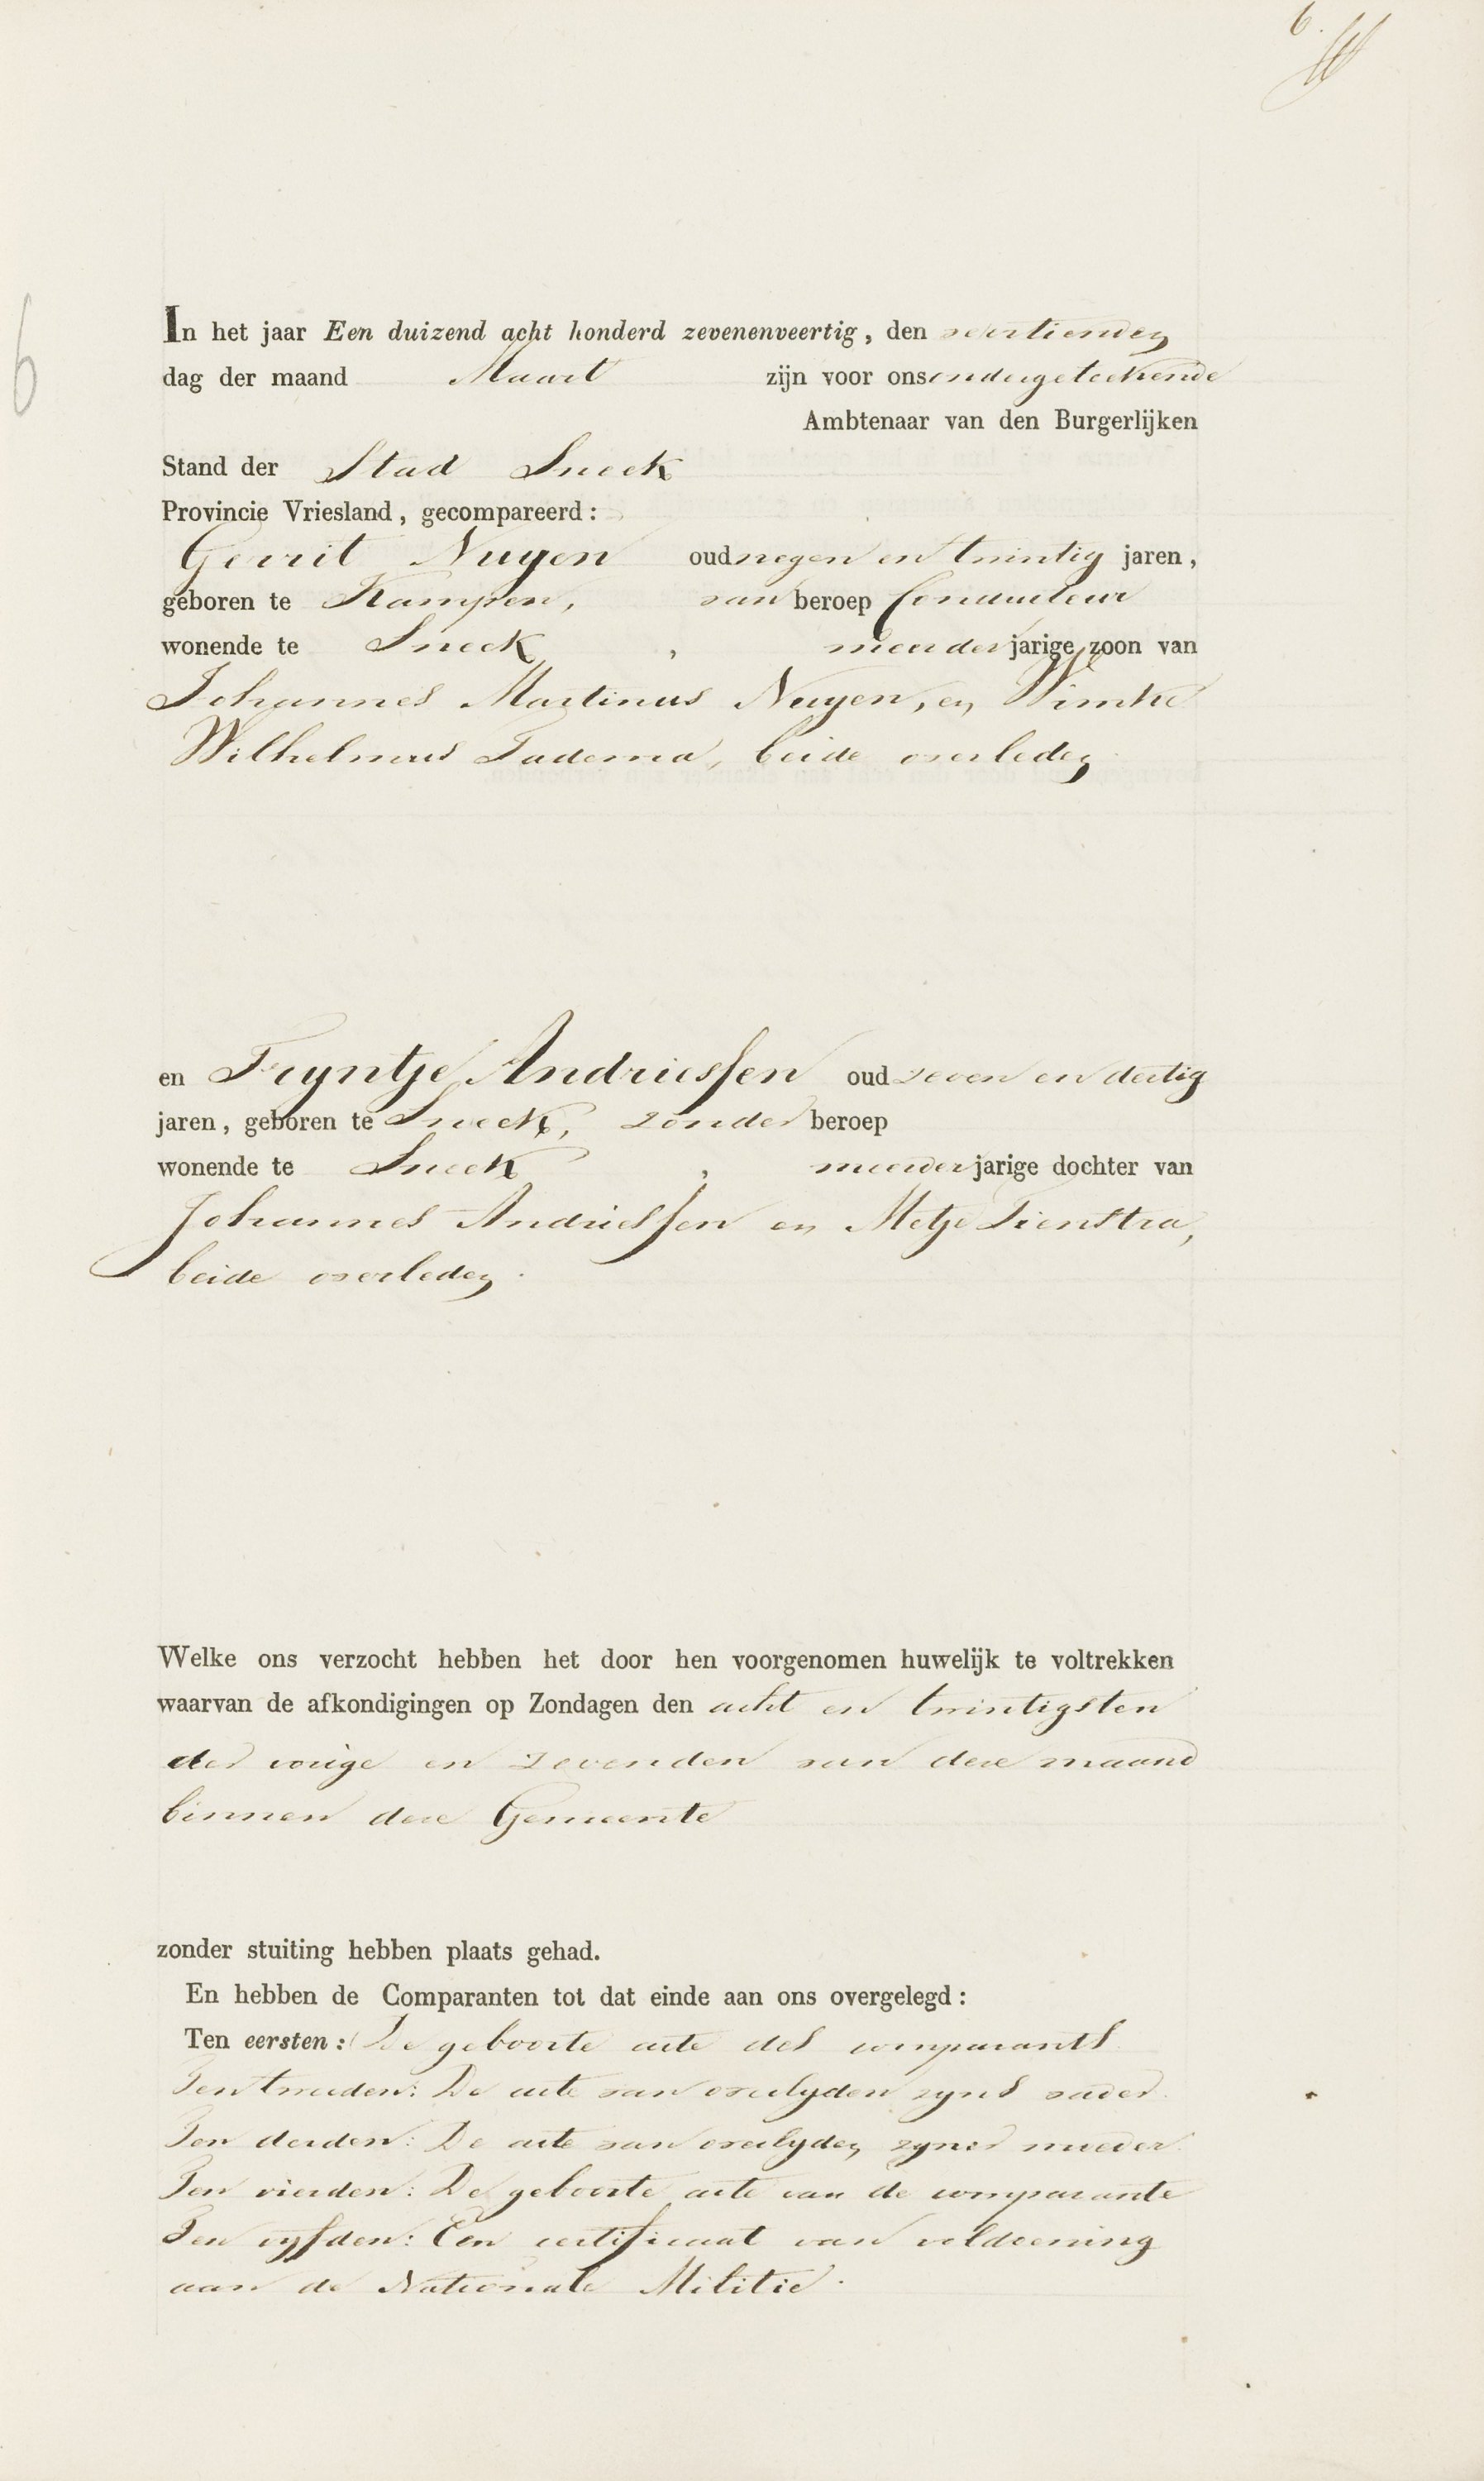 6.
6
In het jaar Een duizend acht honderd zevenenveertig, den veertienden
dag der maand Maart zijn voor ons ondergeteekende
Ambtenaar van den Burgerlijken
Stand der Stad Sneek
Provincie Vriesland, gecompareerd:
Gerrit Nuyen oud negen en twintig jaren,
geboren te Kampen, van beroep Conducteur
wonende te Sneek, meerderjarige zoon van
Johannes Martinus Nuyen, en Wimke
Wilhelmus Tadema, beide overleden
en Fryntje Andriessen oud zeven en dertig
jaren, geboren te Sneek, zonder beroep
wonende te Sneek, meerderjarige dochter van
Johannes Andriessen en Metje Tienstra,
beide overleden.
Welke ons verzocht hebben het door hen voorgenomen huwelijk te voltrekken
waarvan de afkondigingen op Zondagen den acht en twintigsten
der vorige en zevenden van deze maand
binnen deze Gemeente
zonder stuiting hebben plaats gehad.
En hebben de Comparanten tot dat einde aan ons overgelegd:
Ten eersten: De geboorte acte des comparants
Ten tweeden: De acte van overlyden zyns vader.
Ten derden: De acte van overlyden zyner moeder.
Ten vierden: De geboorte acte van de comparante
Ten vyfden: Een certificaat van voldoening
aan de Nationale Militie.